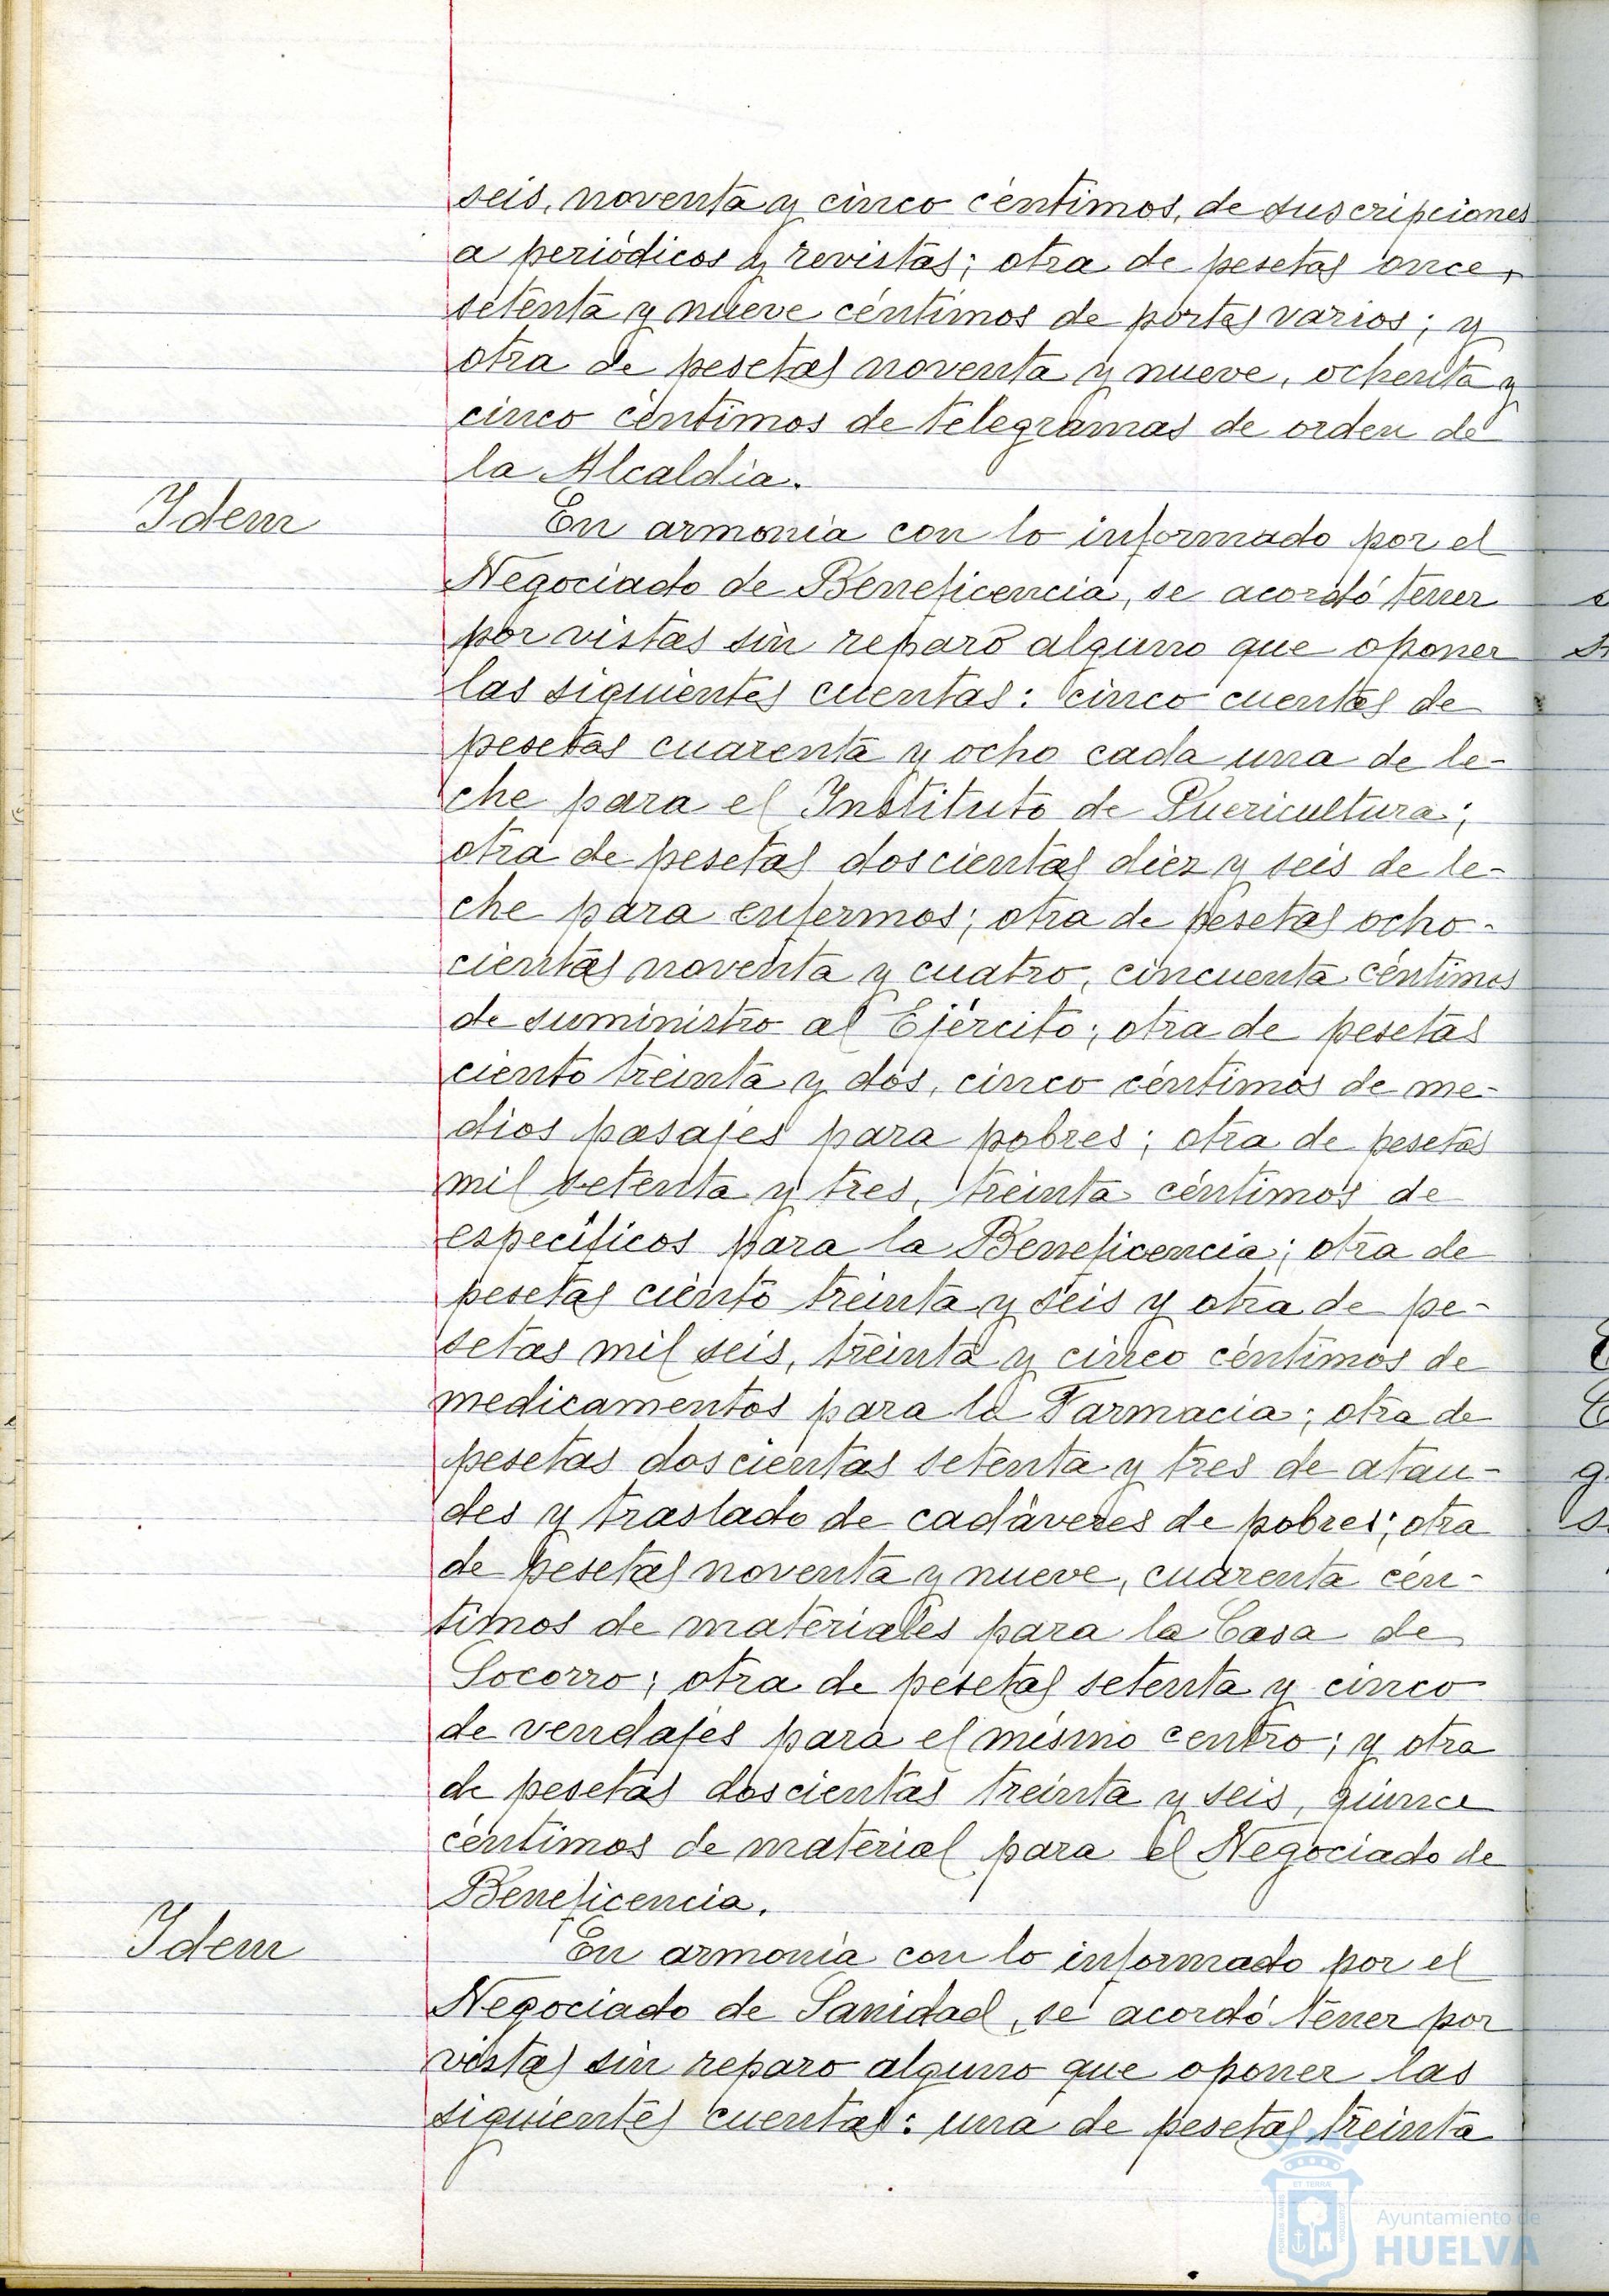 seis, noventa y cinco céntimos, de suscripciones
a periódicos y revistas; otra de pesetas once,
setenta y nueve céntimos de portes varios; y
otra de pesetas noventa y nueve, ochenta y
cinco céntimos de telegramas de orden de
la Alcaldía.
Idem
En armonía con lo informado por el
Negociado de Beneficencia, se acordó tener
por vistas sin reparo alguno que oponer
las siguientes cuentas: cinco cuentas de
pesetas cuarenta y ocho cada una de le-
che para el Instituto de Puericultura;
otra de pesetas doscientas diez y seis de le-
che para enfermos; otra de pesetas ocho-
cientas noventa y cuatro, cincuenta céntimos
de suministro al Ejército; otra de pesetas
ciento treinta y dos, cinco céntimos de me-
dios pasajes para pobres; otra de pesetas
mil setenta y tres, treinta céntimos de
específicos para la Beneficencia; otra de
pesetas ciento treinta y seis y otra de pe-
setas mil seis, treinta y cinco céntimos de
medicamentos para la Farmacia; otra de
pesetas doscientas setenta y tres de atau-
des y traslado de cadáveres de pobres; otra
de pesetas noventa y nueve, cuarenta cén-
timos de materiales para la Casa de
Socorro; otra de pesetas setenta y cinco
de vendajes para el mismo centro; y otra
de pesetas doscientas treinta y seis, quince
céntimos de material para el Negociado de
Beneficencia.
Idem
En armonía con lo informado por el
Negociado de Sanidad, se acordó tener por
vistas sin reparo alguno que oponer las
siguientes cuentas: una de pesetas treinta
Ayuntamiento de
HUELVA